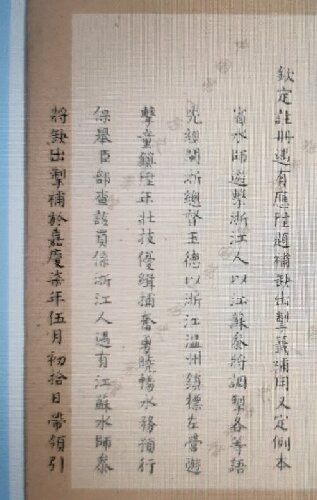 欽定註冊遇有應陞題補缺出掣籤補用又定例本
省水師遊擊浙江人以江蘇叅將調掣各等語
先經閩浙總督玉德以浙江溫州鎮標左營遊
擊童鎮陞年壯技優緝捕奮勇曉暢水務預行
保舉臣部查該員係浙江人遇有江蘇水師叅
將缺出掣補於嘉慶柒年伍月初拾日帶領引